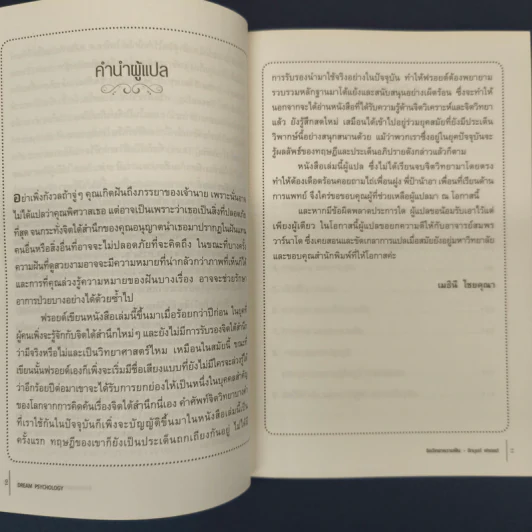 คำนำผู้แปล
อย่าเพิ่งกังวลถ้าจู่ๆ คุณเกิดฝันถึงภรรยาของเจ้านาย เพราะนั่นอาจ
ไม่ได้แปลว่าคุณพิศวาสเธอ แต่อาจเป็นเพราะว่าเธอเป็นสิ่งที่ปลอดภัย
ที่สุด จนกระทั่งจิตใต้สำนึกของคุณอนุญาตนำเธอมาปรากฏในฝันแทน
คนอื่นหรือสิ่งอื่นที่อาจจะไม่ปลอดภัยที่จะคิดถึง ในขณะที่บางครั้ง
ความฝันที่ดูสวยงามอาจจะมีความหมายที่น่ากลัวกว่าภาพที่เห็นก็ได้
และการที่คุณล่วงรู้ความหมายของฝันบางเรื่อง อาจจะช่วยรักษา
อาการป่วยบางอย่างได้ด้วยซ้ำไป
ฟรอยด์เขียนหนังสือเล่มนี้ขึ้นมาเมื่อร้อยกว่าปีก่อน ในยุคที่
ผู้คนเพิ่งจะรู้จักกับจิตใต้สำนึกใหม่ๆ และยังไม่มีการรับรองจิตใต้สำนึก
ว่ามีจริงหรือไม่และเป็นวิทยาศาสตร์ไหม เหมือนในสมัยนี้ ขณะที่
เขียนนั้นฟรอยด์เองก็เพิ่งจะเริ่มมีชื่อเสียงแบบที่ยังไม่มีใครจะล่วงรู้ได้
ว่าอีกร้อยปีต่อมาเขาจะได้รับการยกย่องให้เป็นหนึ่งในบุคคลสำคัญ
ของโลกจากการคิดค้นเรื่องจิตใต้สำนึกนี่เอง คำศัพท์จิตวิทยาบางคำ
ที่เราใช้กันในปัจจุบันก็เพิ่งจะบัญญัติขึ้นมาในหนังสือเล่มนี้เป็น
ครั้งแรก ทฤษฎีของเขาก็ยังเป็นประเด็นถกเถียงกันอยู่ ไม่ได้มี
DREAM PSYCHOLOGY
การรับรองนำมาใช้จริงอย่างในปัจจุบัน ทำให้ฟรอยด์ต้องพยายาม
รวบรวมหลักฐานมาโต้แย้งและสนับสนุนอย่างเผ็ดร้อน ซึ่งจะทำให้
นอกจากจะได้อ่านหนังสือที่ได้รับความรู้ด้านจิตวิเคราะห์และจิตวิทยา
แล้ว ยังรู้สึกสดใหม่ เสมือนได้เข้าไปอยู่ร่วมยุคสมัยที่ยังมีประเด็น
วิพากษ์นี้อย่างสนุกสนานด้วย แม้ว่าพวกเราซึ่งอยู่ในยุคปัจจุบันจะ
รู้ผลลัพธ์ของทฤษฎีและประเด็นอภิปรายดังกล่าวแล้วก็ตาม
หนังสือเล่มนี้ผู้แปล ซึ่งไม่ได้เรียนจบจิตวิทยามาโดยตรง
ทำให้ต้องเดือดร้อนคอยถามไถ่เพื่อนฝูง พี่ป้าน้าอา เพื่อนที่เรียนด้าน
การแพทย์ จึงใคร่ขอขอบคุณผู้ที่ช่วยเหลือผู้แปลมา ณ โอกาสนี้
และหากมีข้อผิดพลาดประการใด ผู้แปลขอน้อมรับเอาไว้แต่
เพียงผู้เดียว ในโอกาสนี้ผู้แปลขอยกความดีให้กับอาจารย์สมพร
วาร์นาโด ซึ่งเคยสอนและขัดเกลาการแปลเมื่อสมัยยังอยู่มหาวิทยาลัย
และขอบคุณสำนักพิมพ์ที่ให้โอกาสค่ะ
เมธินี ไชยคุณา